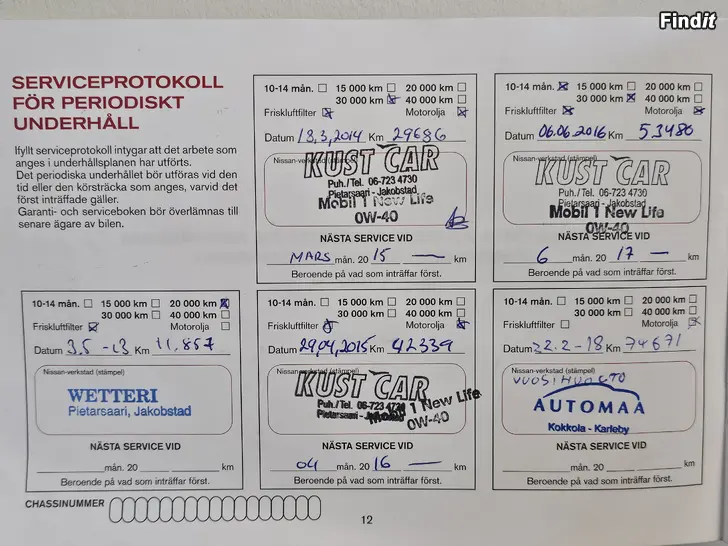 Findit
SERVICEPROTOKOLL
FÖR PERIODISKT
UNDERHÅLL
Ifyllt serviceprotokoll intygar att det arbete som
anges i underhållsplanen har utförts.
Det periodiska underhållet bör utföras vid den
tid eller den körsträcka som anges, varvid det
först inträffade gäller.
Garanti- och serviceboken bör överlämnas till
senare ägare av bilen.
10-14 mån. 15 000 km 20 000 km
30 000 km 40 000 km
Friskluftfilter Motorolja
Datum 18,3,2014 Km 29686
Nissan-verkstad (stämpel)
KUST CAR
Puh./Tel. 06-723 4730
Pietarsaari - Jakobstad
Mobil 1 New Life
0W-40
NÄSTA SERVICE VID
MARS mån. 20 15 — km
Beroende på vad som inträffar först.
10-14 mån. 15 000 km 20 000 km
30 000 km 40 000 km
Friskluftfilter Motorolja
Datum 06.06.2016 Km 53486
Nissan-verkstad (stämpel)
KUST CAR
Puh./Tel. 06-723 4730
Pietarsaari - Jakobstad
Mobil 1 New Life
0W-40
NÄSTA SERVICE VID
6 mån. 20 17 — km
Beroende på vad som inträffar först.
10-14 mån. 15 000 km 20 000 km
30 000 km 40 000 km
Friskluftfilter Motorolja
Datum 3.5 -13 Km 11.857
Nissan-verkstad (stämpel)
WETTERI
Pietarsaari, Jakobstad
NÄSTA SERVICE VID
mån. 20 km
Beroende på vad som inträffar först.
10-14 mån. 15 000 km 20 000 km
30 000 km 40 000 km
Friskluftfilter Motorolja
Datum 29,04,2015 Km 42339
Nissan-verkstad (stämpel)
KUST CAR
Puh./Tel. 06-723
Pietarsaari 1 New Life
0W-40
NÄSTA SERVICE VID
04 mån. 20 16 — km
Beroende på vad som inträffar först.
10-14 mån. 15 000 km 20 000 km
30 000 km 40 000 km
Friskluftfilter Motorolja
Datum 22.2-18 Km 74671
Nissan-verkstad (stämpel)
VUOSIHUOLTO
AUTOMAA
Kokkola - Karleby
NÄSTA SERVICE VID
mån. 20 km
Beroende på vad som inträffar först.
CHASSINUMMER
12